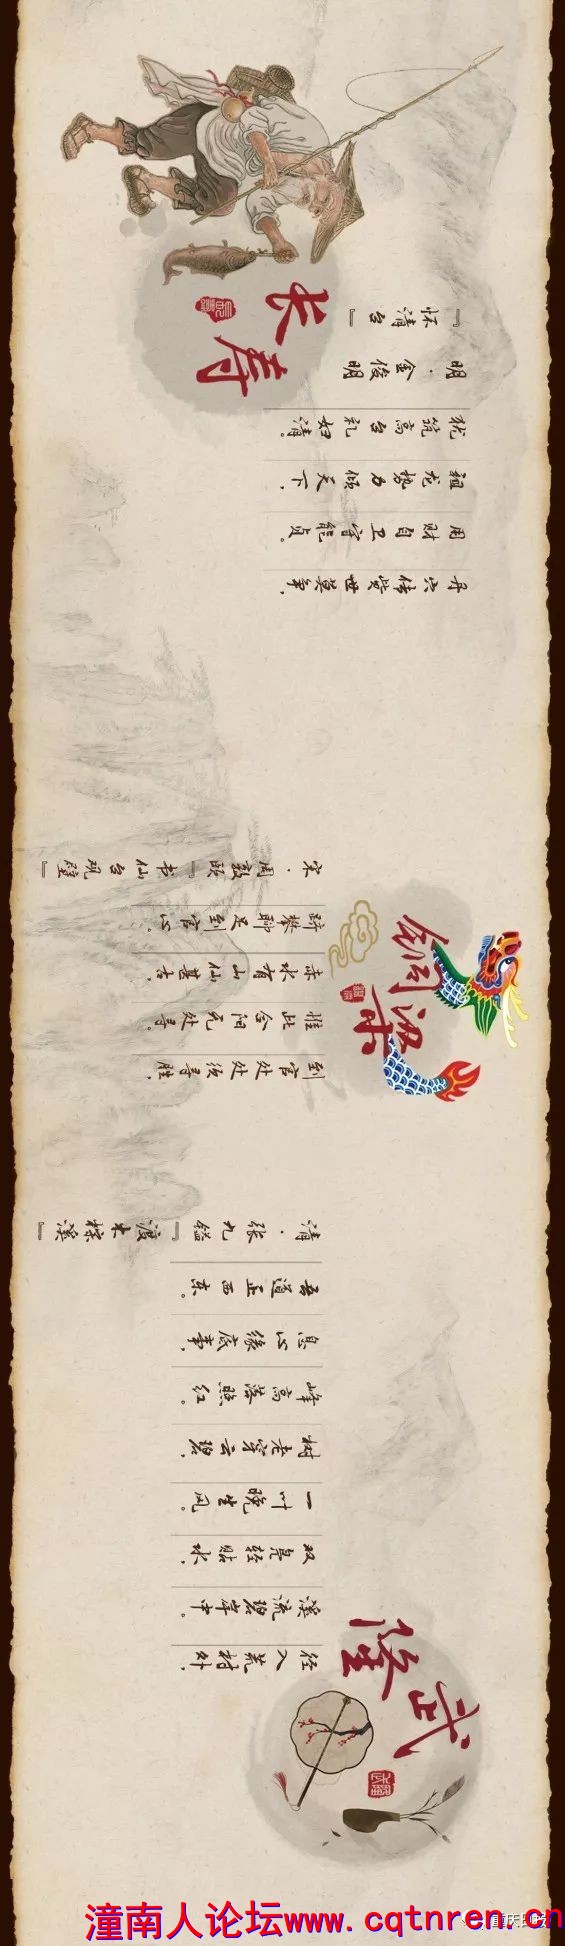 武隆
径入荒村外，
溪流碧岸中。
双凫轻贴水，
一叶晚生风。
树老穿云碧
峰高落照红
息心缘底事，
吾道正西东。
清·张九镒『渡木棕溪』
铜梁
到官处处须寻胜，
惟此合阳无处寻。
赤水有山仙甚古，
跻攀聊足到官心。
宋·周敦颐『书仙台观壁』
长寿
丹穴传赀世莫争，
用财自卫守能贞。
祖龙势力倾天下，
犹筑高台礼妇清。
明·金俊明
『怀清台』
潼南人论坛www.cqtnren.cn